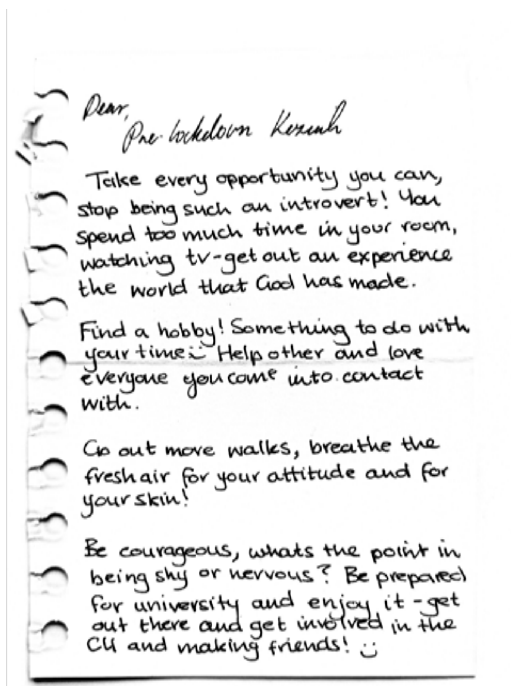 Dear,
Pre-lockdown Keziah
Take every opportunity you can,
stop being such an introvert! You
spend too much time in your room,
watching tv-get out an experience
the world that God has made.
Find a hobby! Something to do with
your time :) Help other and love
everyone you come into contact
with.
Go out more walks, breathe the
fresh air for your attitude and for
your skin!
Be courageous, whats the point in
being shy or nervous? Be prepared
for university and enjoy it - get
out there and get involved in the
CU and making friends! :)